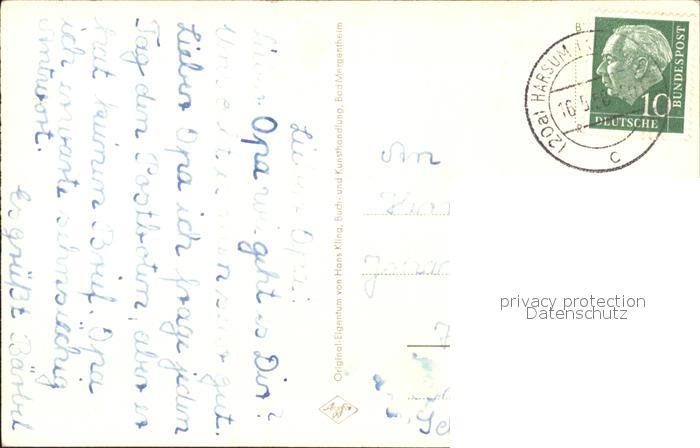 Lieber Opa!
Mein Opa wie geht es Dir?
Uns geht es immer gut.
Lieber Opa ich frage jeden
Tag den Postboten, aber er
hat keinen Brief. Opa
ich erwarte sehnsüchtig
Antwort.
Es grüßt Bärbel
Original-Eigentum von Hans Kling, Buch- und Kunsthandlung, Bad Mergentheim
Agfa
An
(20a) HARSUM
16.5.
c
10
DEUTSCHE
BUNDESPOST
privacy protection
Datenschutz